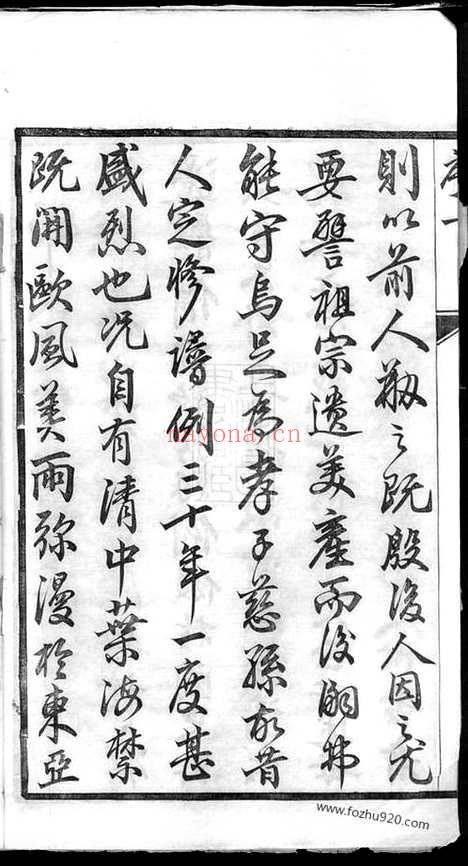 則以前人剙之既殷後人因之尤
要譬祖宗遺美產而後嗣弗
能守烏足為孝子慈孫哉昔
人定修譜例三十年一度甚
盛烈也况自有清中葉海禁
既開歐風美雨弥漫於東亞
nayona.cn
www.fozhu920.com